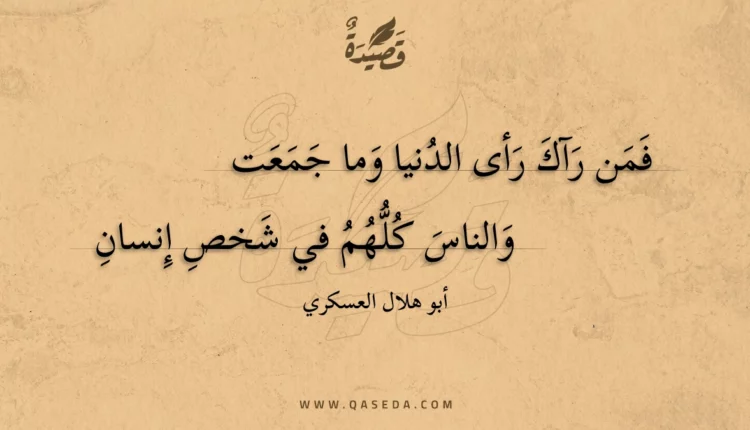 قَصِيْدَةٌ
فَمَن رَآكَ رَأى الدُنيا وَما جَمَعَت
وَالناسَ كُلُّهُمُ في شَخصِ إِنسانِ
أبو هلال العسكري
WWW.QASEDA.COM